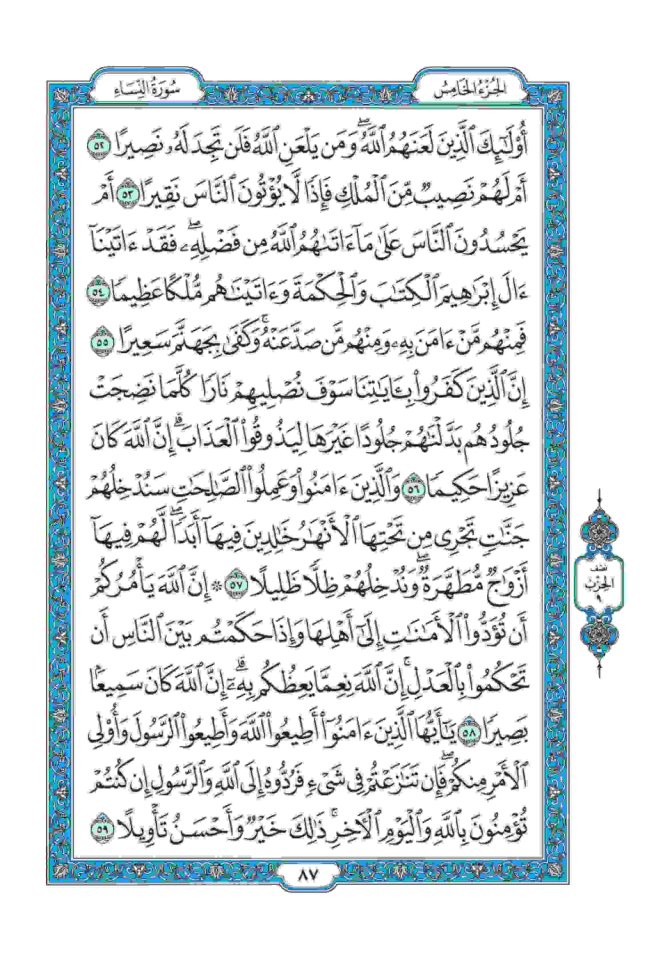 الجُزْءُ الخَامِسُ
سُورَةُ النِّسَاءِ
أُوْلَٰٓئِكَ ٱلَّذِينَ لَعَنَهُمُ ٱللَّهُۖ وَمَن يَلْعَنِ ٱللَّهُ فَلَن تَجِدَ لَهُۥ نَصِيرًا ٥٢
أَمْ لَهُمْ نَصِيبٌ مِّنَ ٱلْمُلْكِ فَإِذًا لَّا يُؤْتُونَ ٱلنَّاسَ نَقِيرًا ٥٣ أَمْ
يَحْسُدُونَ ٱلنَّاسَ عَلَىٰ مَآ ءَاتَىٰهُمُ ٱللَّهُ مِن فَضْلِهِۦۖ فَقَدْ ءَاتَيْنَآ
ءَالَ إِبْرَٰهِيمَ ٱلْكِتَٰبَ وَٱلْحِكْمَةَ وَءَاتَيْنَٰهُم مُّلْكًا عَظِيمًا ٥٤
فَمِنْهُم مَّنْ ءَامَنَ بِهِۦ وَمِنْهُم مَّن صَدَّ عَنْهُۚ وَكَفَىٰ بِجَهَنَّمَ سَعِيرًا ٥٥
إِنَّ ٱلَّذِينَ كَفَرُواْ بِـَٔايَٰتِنَا سَوْفَ نُصْلِيهِمْ نَارًا كُلَّمَا نَضِجَتْ
جُلُودُهُم بَدَّلْنَٰهُمْ جُلُودًا غَيْرَهَا لِيَذُوقُواْ ٱلْعَذَابَۗ إِنَّ ٱللَّهَ كَانَ
عَزِيزًا حَكِيمًا ٥٦ وَٱلَّذِينَ ءَامَنُواْ وَعَمِلُواْ ٱلصَّٰلِحَٰتِ سَنُدْخِلُهُمْ
جَنَّٰتٍ تَجْرِي مِن تَحْتِهَا ٱلْأَنْهَٰرُ خَٰلِدِينَ فِيهَآ أَبَدًاۖ لَّهُمْ فِيهَآ
أَزْوَٰجٌ مُّطَهَّرَةٌۖ وَنُدْخِلُهُمْ ظِلًّا ظَلِيلًا ٥٧ ۞ إِنَّ ٱللَّهَ يَأْمُرُكُمْ
أَن تُؤَدُّواْ ٱلْأَمَٰنَٰتِ إِلَىٰٓ أَهْلِهَا وَإِذَا حَكَمْتُم بَيْنَ ٱلنَّاسِ أَن
تَحْكُمُواْ بِٱلْعَدْلِۚ إِنَّ ٱللَّهَ نِعِمَّا يَعِظُكُم بِهِۦٓۗ إِنَّ ٱللَّهَ كَانَ سَمِيعًۢا
بَصِيرًا ٥٨ يَٰٓأَيُّهَا ٱلَّذِينَ ءَامَنُوٓاْ أَطِيعُواْ ٱللَّهَ وَأَطِيعُواْ ٱلرَّسُولَ وَأُوْلِي
ٱلْأَمْرِ مِنكُمْۖ فَإِن تَنَٰزَعْتُمْ فِي شَيْءٍ فَرُدُّوهُ إِلَى ٱللَّهِ وَٱلرَّسُولِ إِن كُنتُمْ
تُؤْمِنُونَ بِٱللَّهِ وَٱلْيَوْمِ ٱلْأٓخِرِۚ ذَٰلِكَ خَيْرٌ وَأَحْسَنُ تَأْوِيلًا ٥٩
نصف
الحزب
٩
٨٧